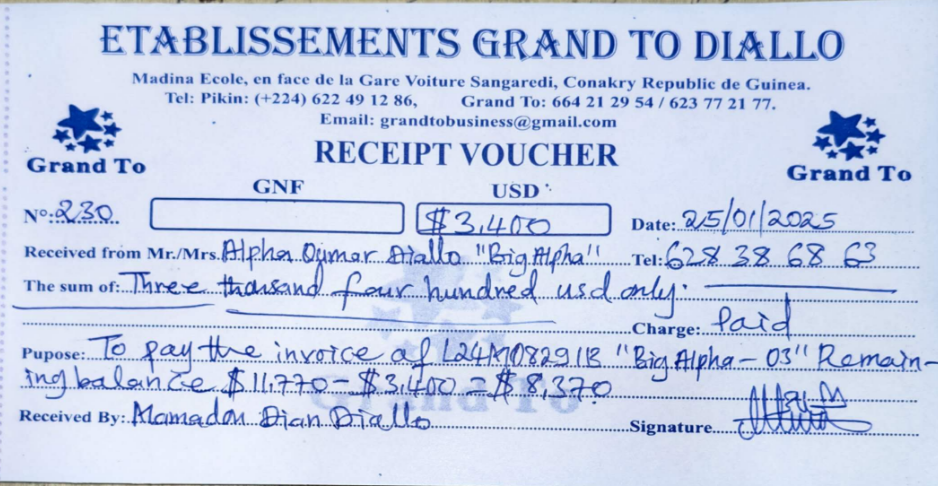 ETABLISSEMENTS GRAND TO DIALLO
Madina Ecole, en face de la Gare Voiture Sangaredi, Conakry Republic de Guinea.
Tel: Pikin: (+224) 622 49 12 86, Grand To: 664 21 29 54 / 623 77 21 77.
Email: grandtobusiness@gmail.com
Grand To
RECEIPT VOUCHER
Grand To
GNF USD
N°: 230 $3,400 Date: 25/01/2025
Received from Mr./Mrs. Alpha Oumar Diallo "Big Alpha" Tel: 628 38 68 63
The sum of: Three thousand four hundred usd only.
Charge: Paid
Pupose: To pay the invoice of L24M08291B "Big Alpha - 03" Remain-
ing balance $11,770 - $3,400 = $8,370
Grand To
Received By: Mamadou Dian Diallo Signature